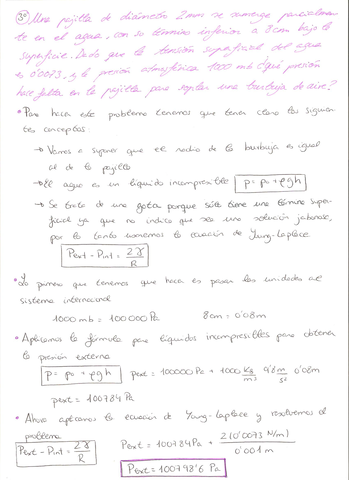 3º) Una pajilla de diámetro 2mm se sumerge parcialmen
te en el agua, con su término inferior a 8cm bajo la
superficie. Dado que la tensión superficial del agua
es 0'0073, y la presión atmosférica 1000 mb ¿Qué presión
hace falta en la pajilla para soplar una burbuja de aire?
• Para hacer este problema tenemos que tener claro los siguien
tes conceptos:
→ Vamos a suponer que el radio de la burbuja es igual
al de la pajilla
→ El agua es un líquido incompresible p = p₀ + ρgh
→ Se trata de una gota porque sólo tiene una lámina super-
ficial ya que no indica que sea una solución jabonosa,
por lo tanto usaremos la ecuación de Young-Laplace
Pext - Pint = 2γ/R
• Lo primero que tenemos que hacer es pasar las unidades al
sistema internacional
1000 mb = 100000 Pa 8cm = 0'08m
• Aplicamos la fórmula para líquidos incompresibles para obtener
la presión externa
p = p₀ + ρgh pext = 100000 Pa + 1000 kg/m³ 9'8 m/s² 0'08m
pext = 100784 Pa
• Ahora aplicamos la ecuación de Young-Laplace y resolvemos el
problema
Pext - Pint = 2γ/R Pext = 100784 Pa + 2(0'0073 N/m)/0'001m
Pext = 100798'6 Pa